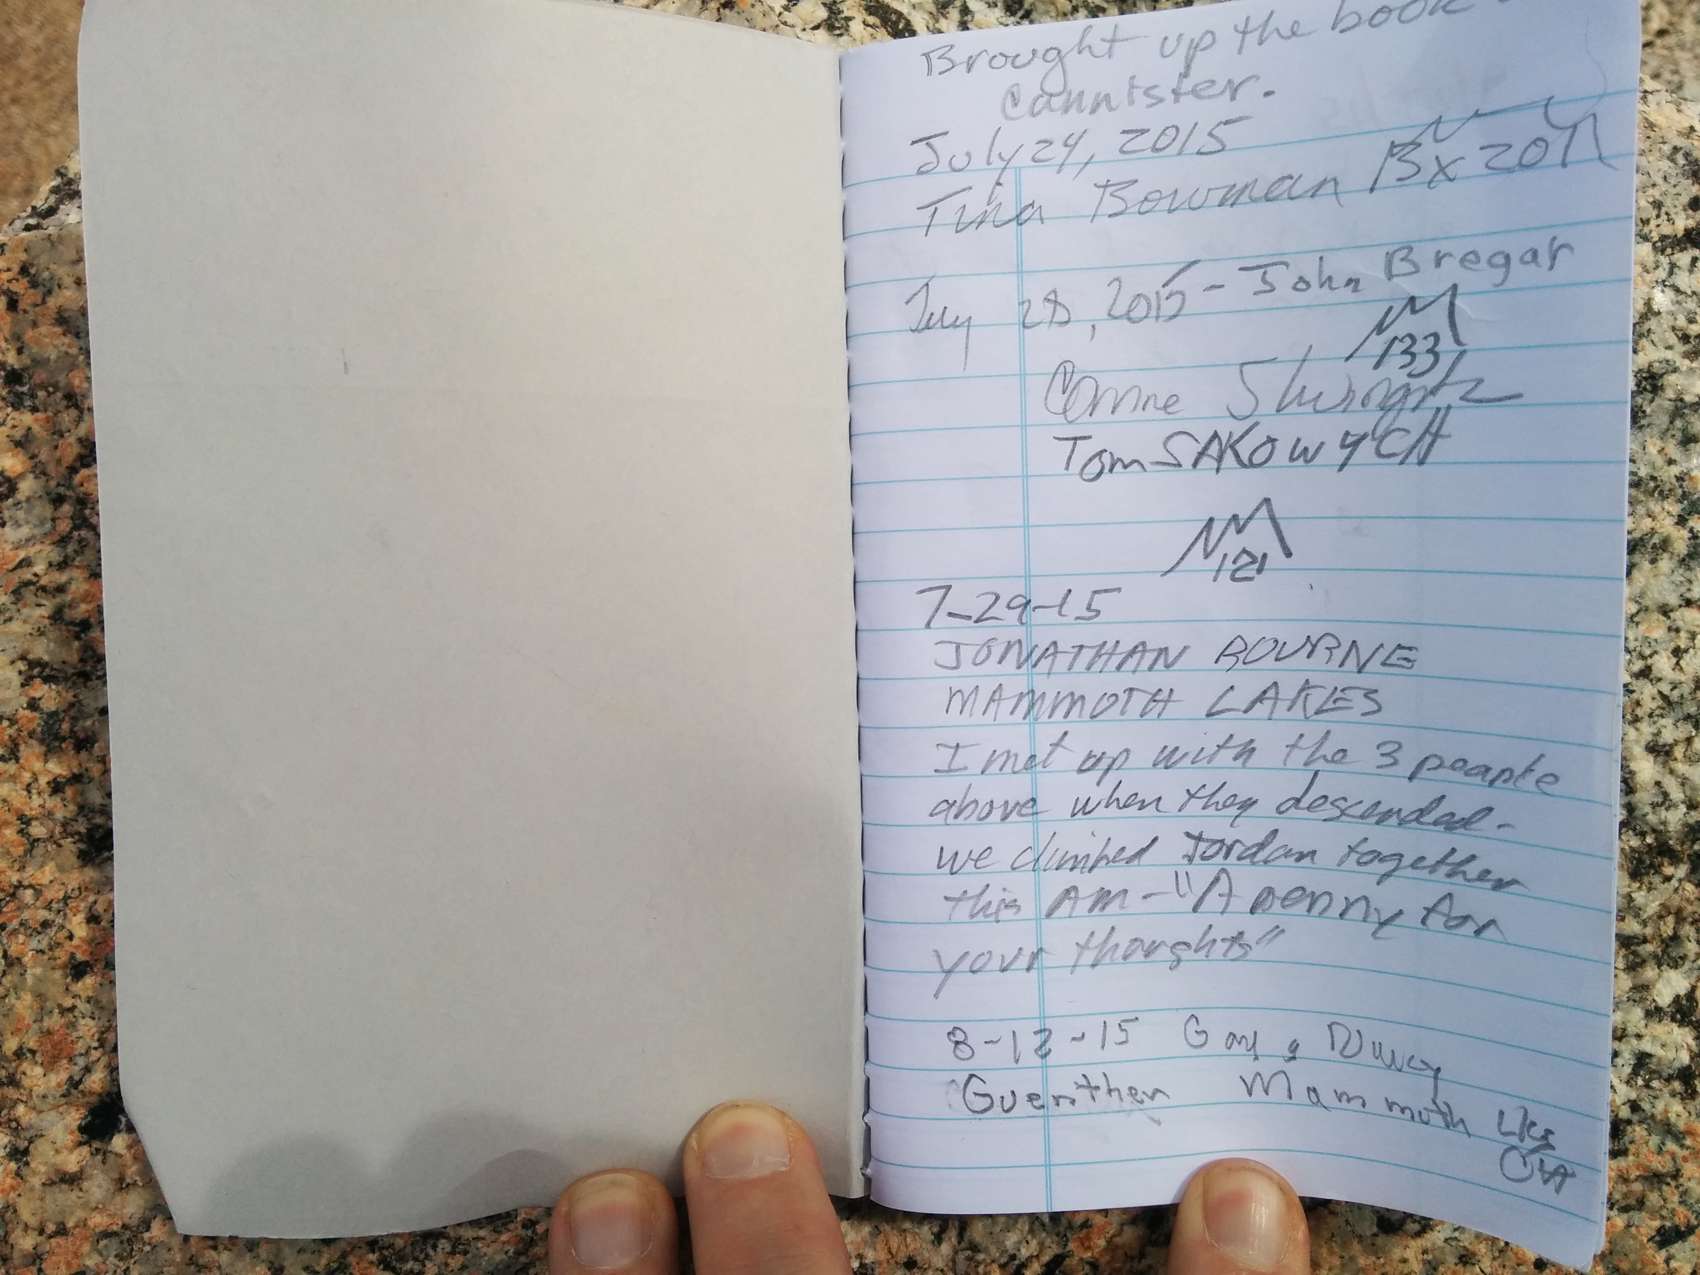 Brought up the book
Cannister.
July 24, 2015
Tina Bowman 13x 2011
July 28, 2015 - John Bregar
133
Corine
Tom SAKOWYCH
121
7-29-15
JONATHAN BOURNE
MAMMOTH LAKES
I met up with the 3 people
above when they descended-
we climbed Jordan together
this AM - "A penny for
your thoughts"
8-12-15 Gary & Nancy
Guenther Mammoth Lks
CA